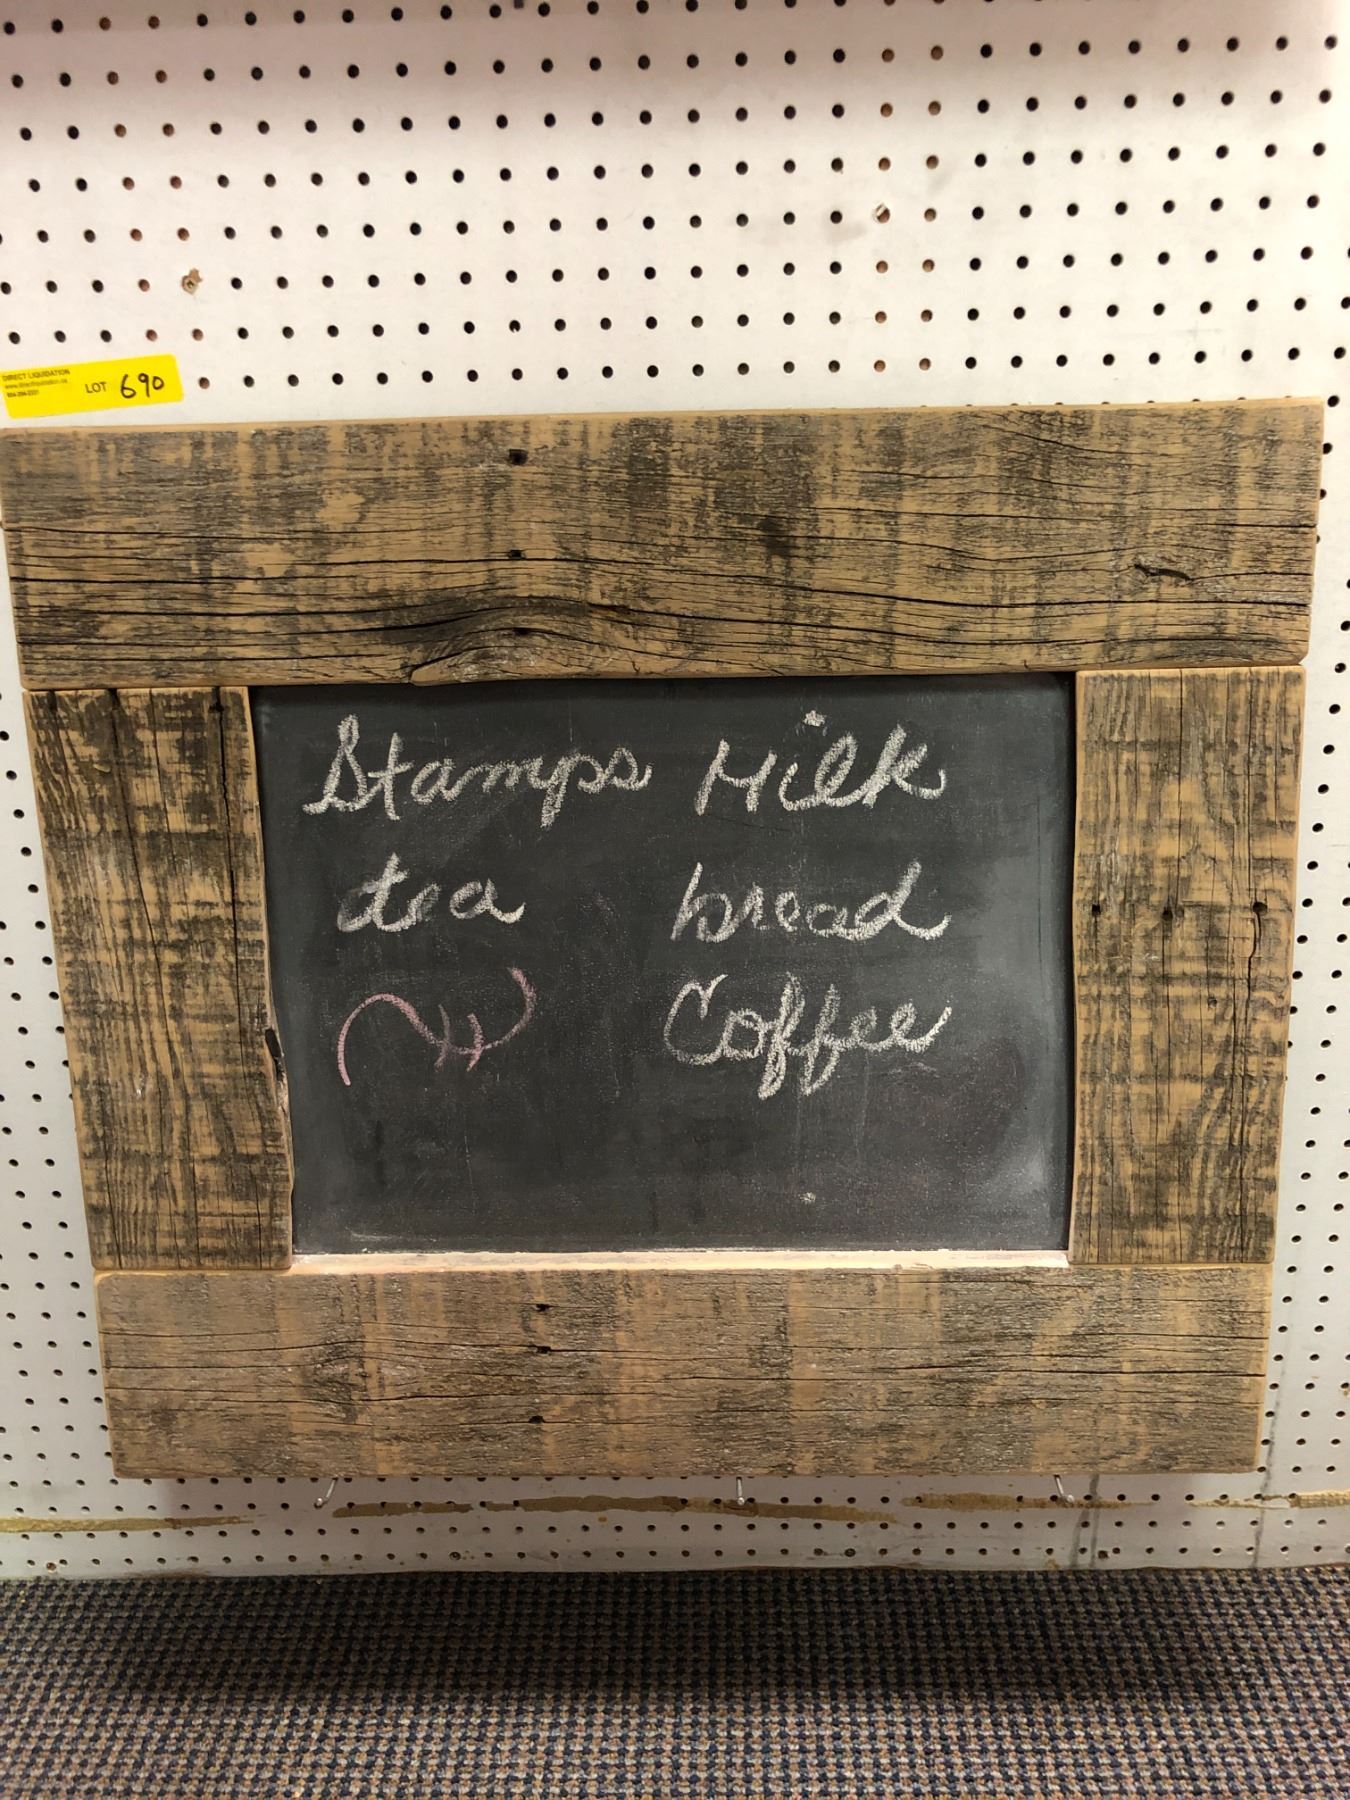 DIRECT LIQUIDATION
LOT 690
Stamps Milk
tea bread
Coffee